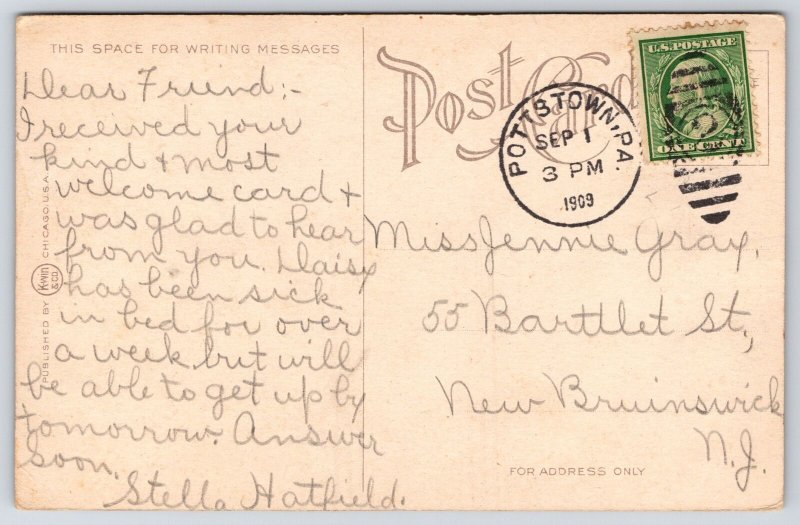 THIS SPACE FOR WRITING MESSAGES
Dear Friend:-
I received your
kind + most
welcome card +
was glad to hear
from you. Daisy
has been sick
in bed for over
a week but will
be able to get up by
tomorrow. Answer
soon.
Stella Hatfield.
PUBLISHED BY KWIN & CO. CHICAGO, U.S.A.
Post Card
POTTSTOWN, PA.
SEP 1
3 PM
1909
U.S. POSTAGE
2
ONE CENT
Miss Jennie Gray,
55 Barttlet St.,
New Bruinswick
N.J.
FOR ADDRESS ONLY